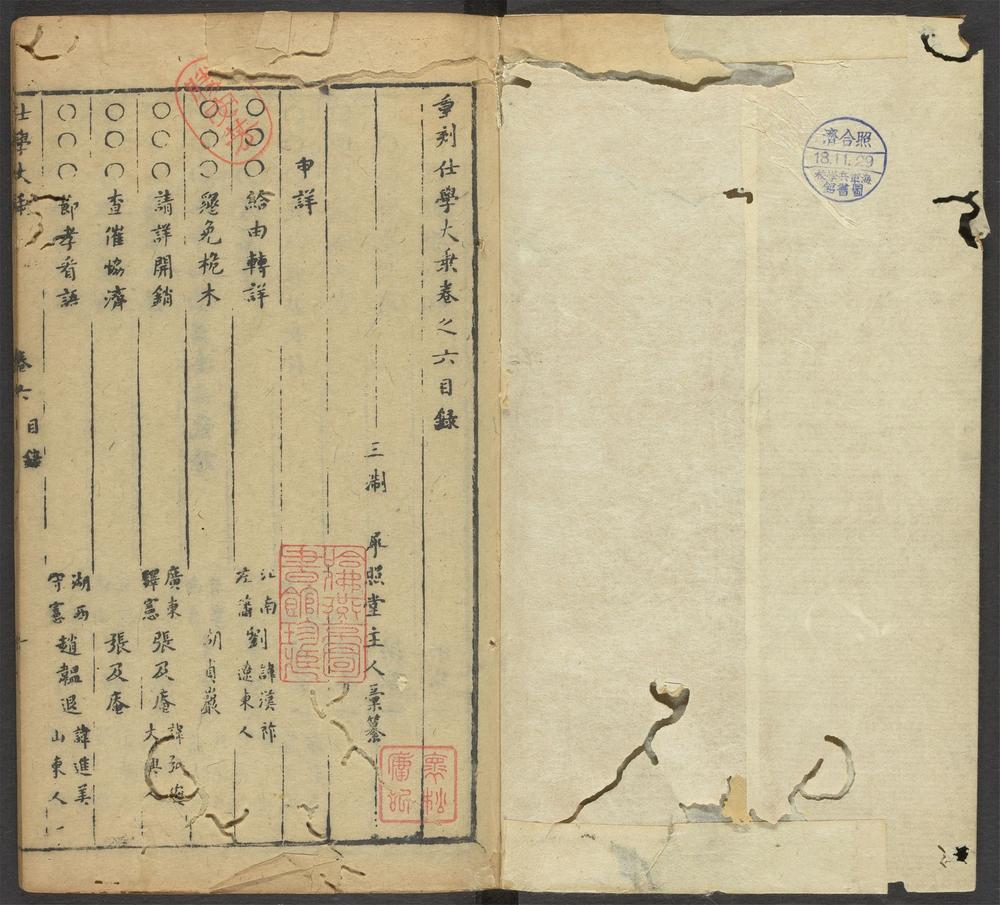 重刻仕學大乗卷之六目録
三淛 犀照堂主人彙纂
申詳
○○○給由轉詳 江南左藩劉諱漢祚遼東人
○○○懇免桅木 胡貞巖
○○○請詳開銷 廣東驛憲張及庵諱弘
○○○查催協濟 張及庵
○○○節孝看語 湖西守憲趙韞退諱進美山東人
仕學大乗 卷六 目録 一
照合濟
18.11.29
海軍兵學校
圖書館